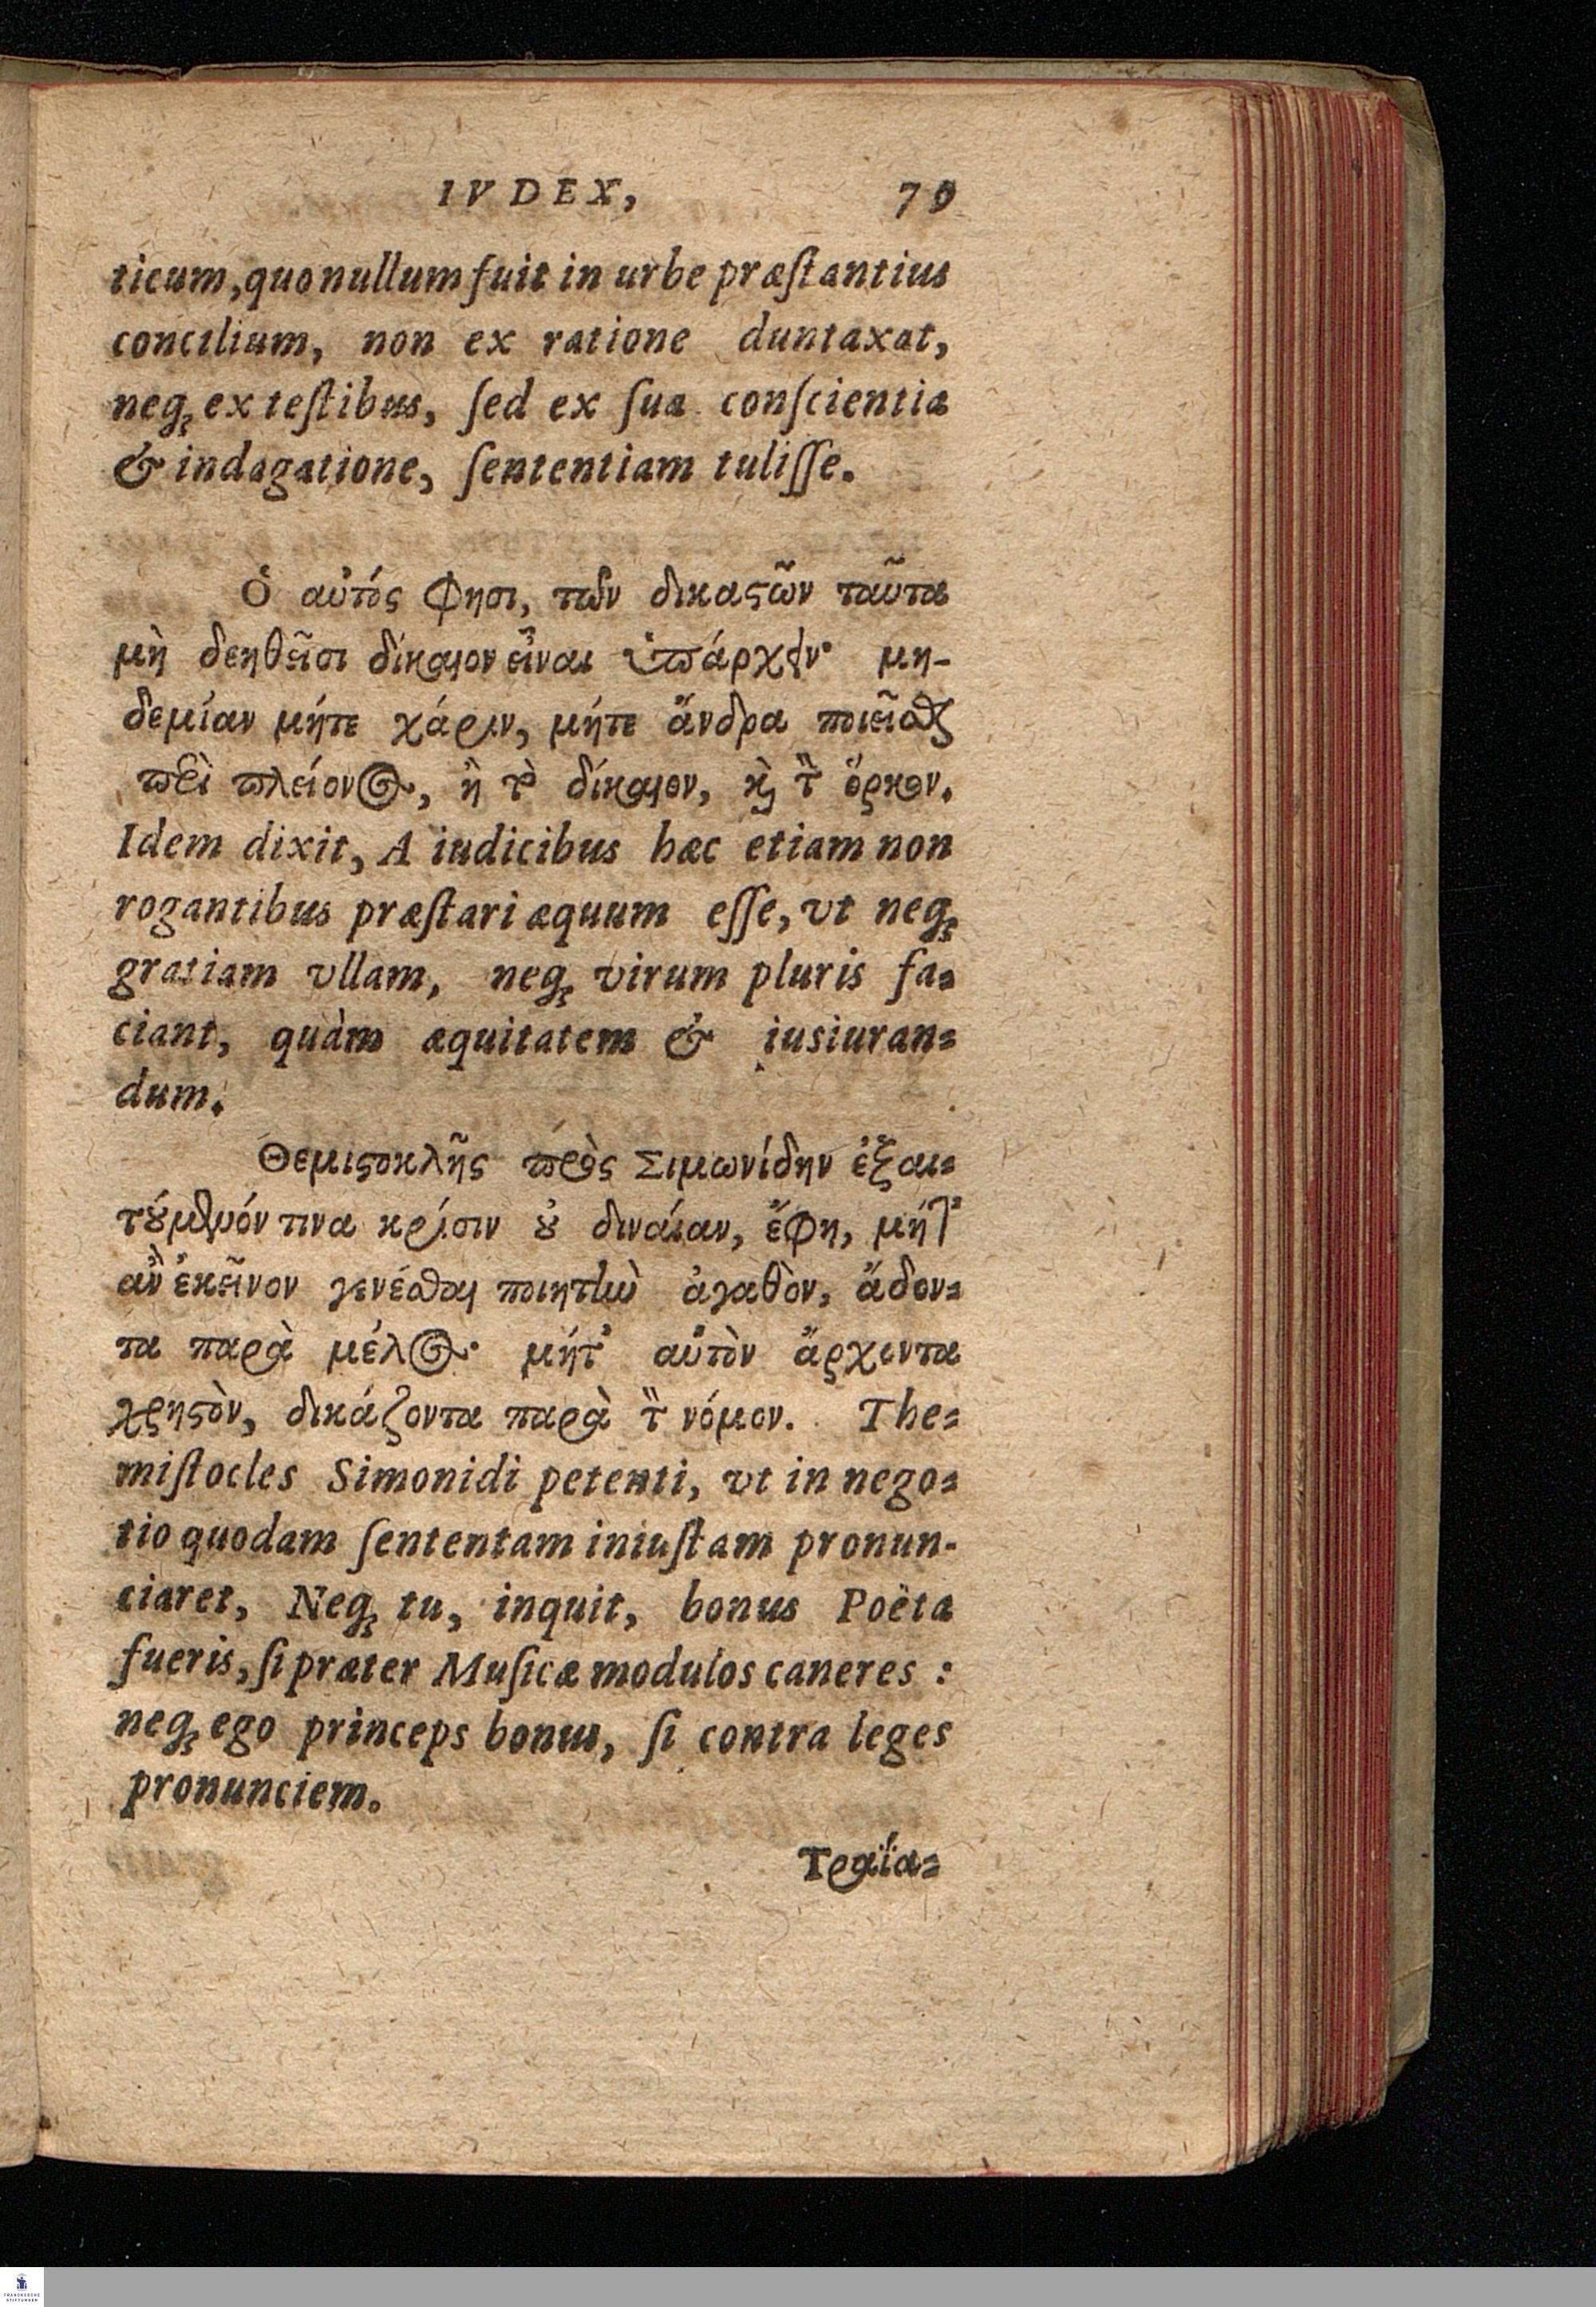 IVDEX, 70
ticum, quo nullum fuit in urbe præſtantius
concilium, non ex ratione duntaxat,
neq; ex teſtibus, ſed ex ſua conſcientia
& indagatione, ſententiam tuliſſe.
Ὁ αὐτός φησι, τῶν δικαϛῶν ταῦτα
μὴ δεηθεῖσι δίκαιον εἶναι ὑπάρχειν· μη-
δεμίαν μήτε χάριν, μήτε ἄνδρα ποιεῖσθαι
περὶ πλείονος, ἢ τὸ δίκαιον, καὶ τὸν ὅρκον.
Idem dixit, A iudicibus hæc etiam non
rogantibus præſtari æquum eſſe, vt neq;
gratiam vllam, neq; virum pluris fa=
ciant, quàm æquitatem & iusiuran=
dum.
Θεμιϛοκλῆς πρὸς Σιμωνίδην ἐξαι=
τούμενόν τινα κρίσιν οὐ δικαίαν, ἔφη, μήτ'
ἂν ἐκεῖνον γενέσθαι ποιητὴν ἀγαθὸν, ἄδον=
τα παρὰ μέλος· μήτ' αὐτὸν ἄρχοντα
χρηϛὸν, δικάζοντα παρὰ τὸν νόμον. The=
miſtocles Simonidi petenti, vt in nego=
tio quodam ſententam iniuſtam pronun-
ciaret, Neq; tu, inquit, bonus Poëta
fueris, ſi præter Muſicæ modulos caneres :
neq; ego princeps bonus, ſi contra leges
pronunciem.
Τραϊα=
FRANCKESCHE
STIFTUNGEN